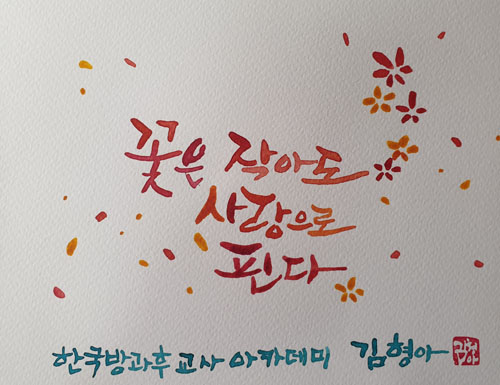 꽃은 작아도
사랑으로
핀다
한국방과후교사아카데미 김형아